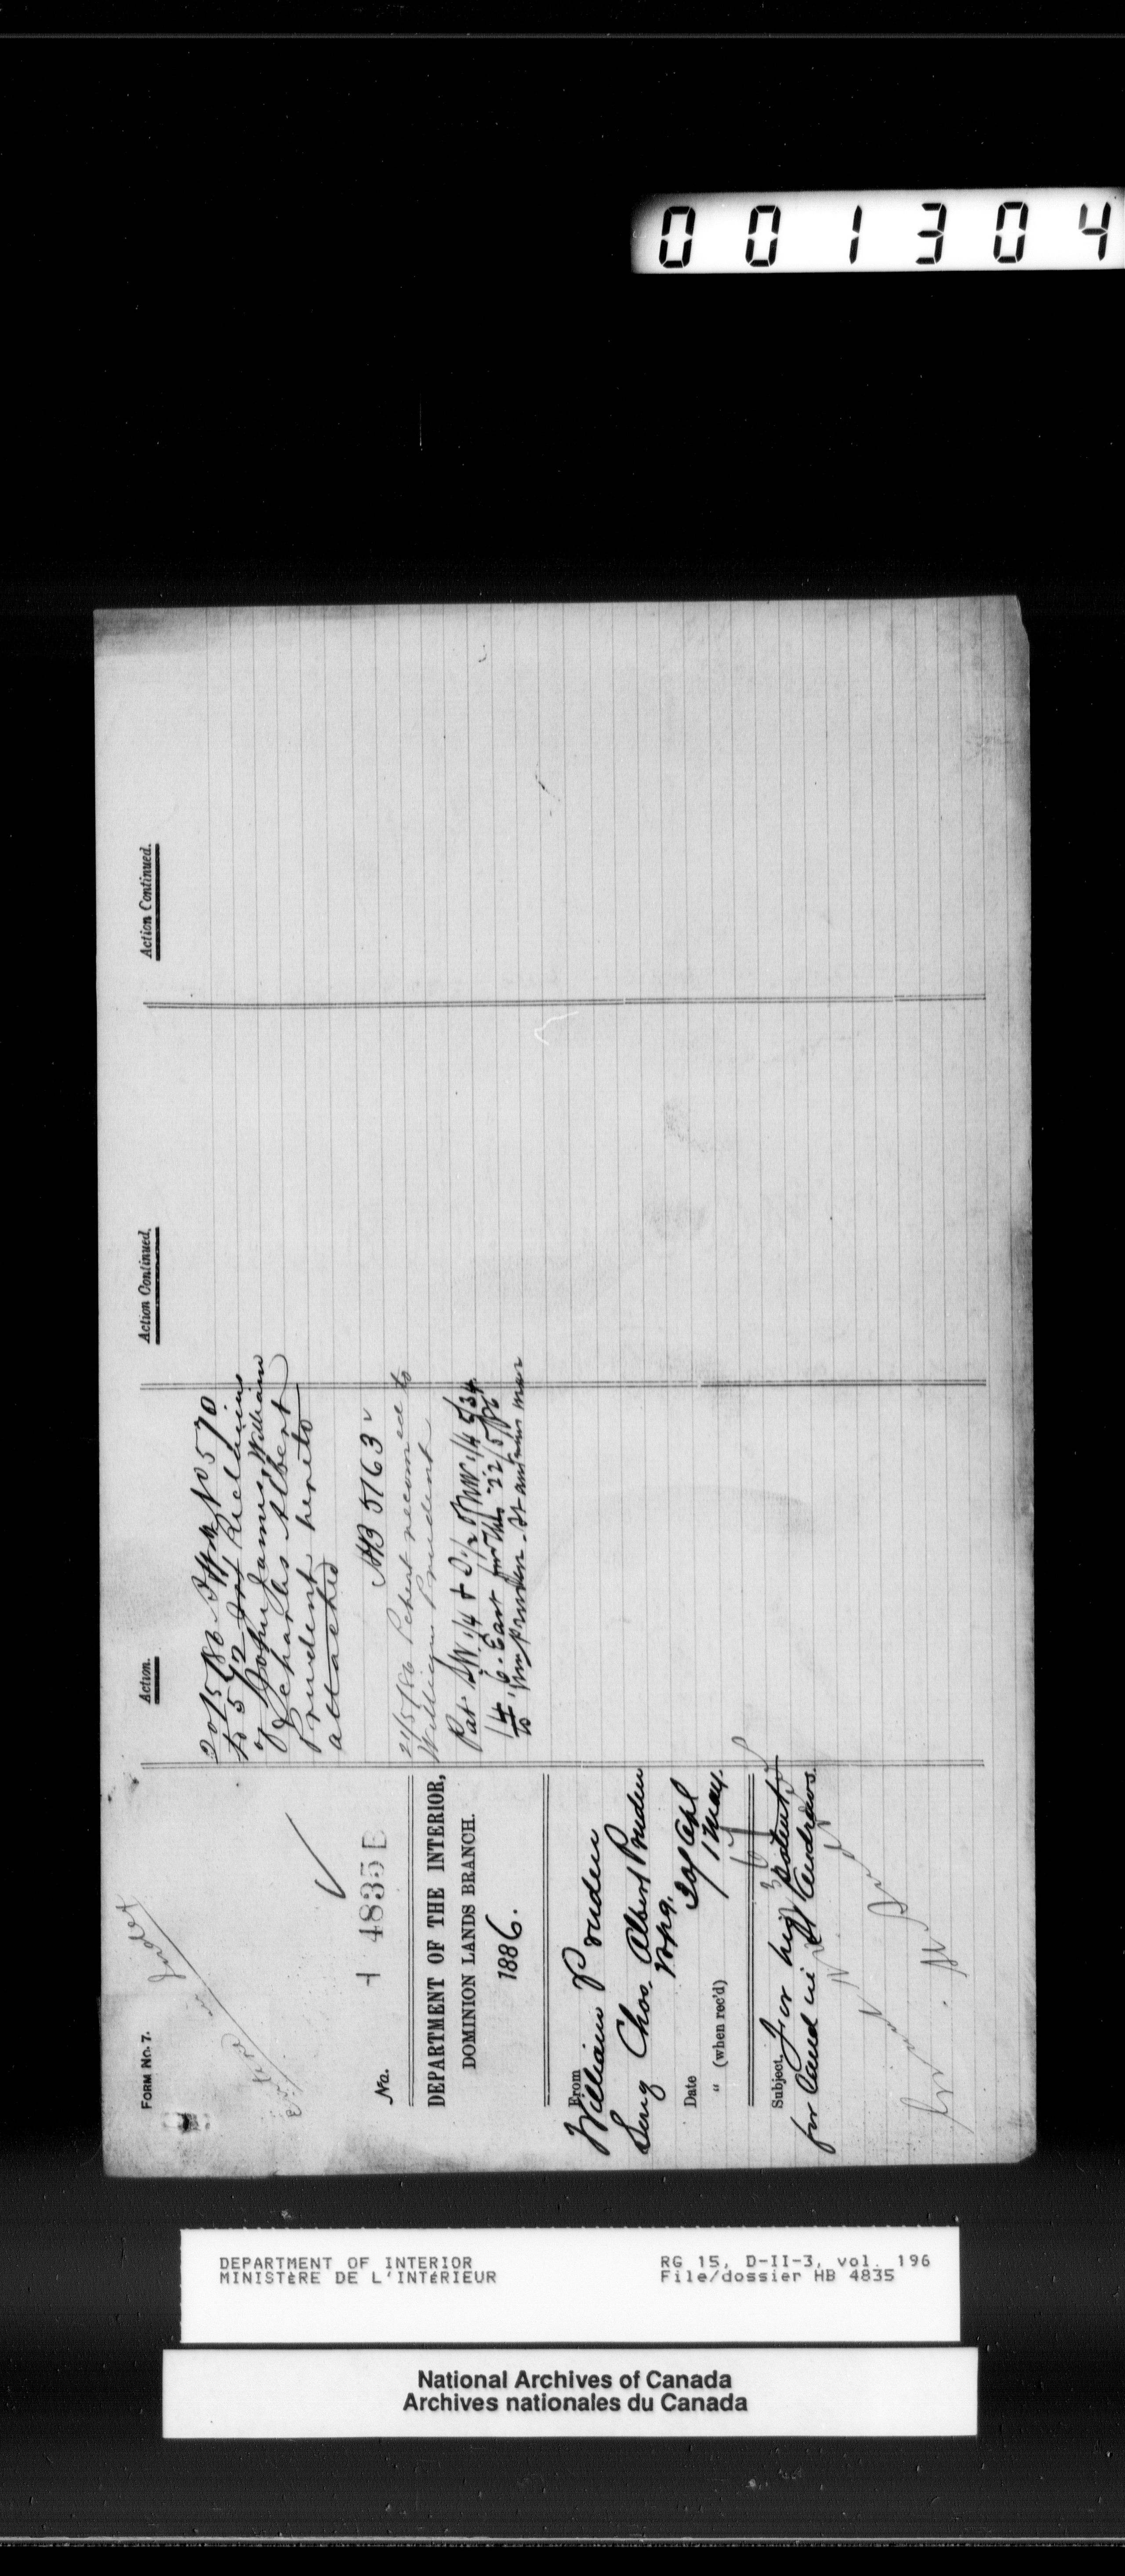 001304
FORM No. 7.
No. H 4835 B
DEPARTMENT OF THE INTERIOR,
DOMINION LANDS BRANCH.
1886.
From
William Pruden
Chas. Albert Pruden
Wpg.
Date 20/ Apl
" (when rec'd) 1 May.
Subject. For his patent
for land in St Andrews.
Action.
20/5/86 No 570
to 572
of John James, William
& Charles Albert
Prudent hereto
attached
HB 5163
21/5/86 Patent recommed to
William Prudent
Pat. SW 1/4 & S 1/2 of NW 1/4 5/34
14 6. East 22/5/86
to Wm Pruden. St Andrews Man
Action Continued.
Action Continued.
DEPARTMENT OF INTERIOR
MINISTÈRE DE L'INTÉRIEUR
RG 15, D-II-3, vol. 196
File/dossier HB 4835
National Archives of Canada
Archives nationales du Canada